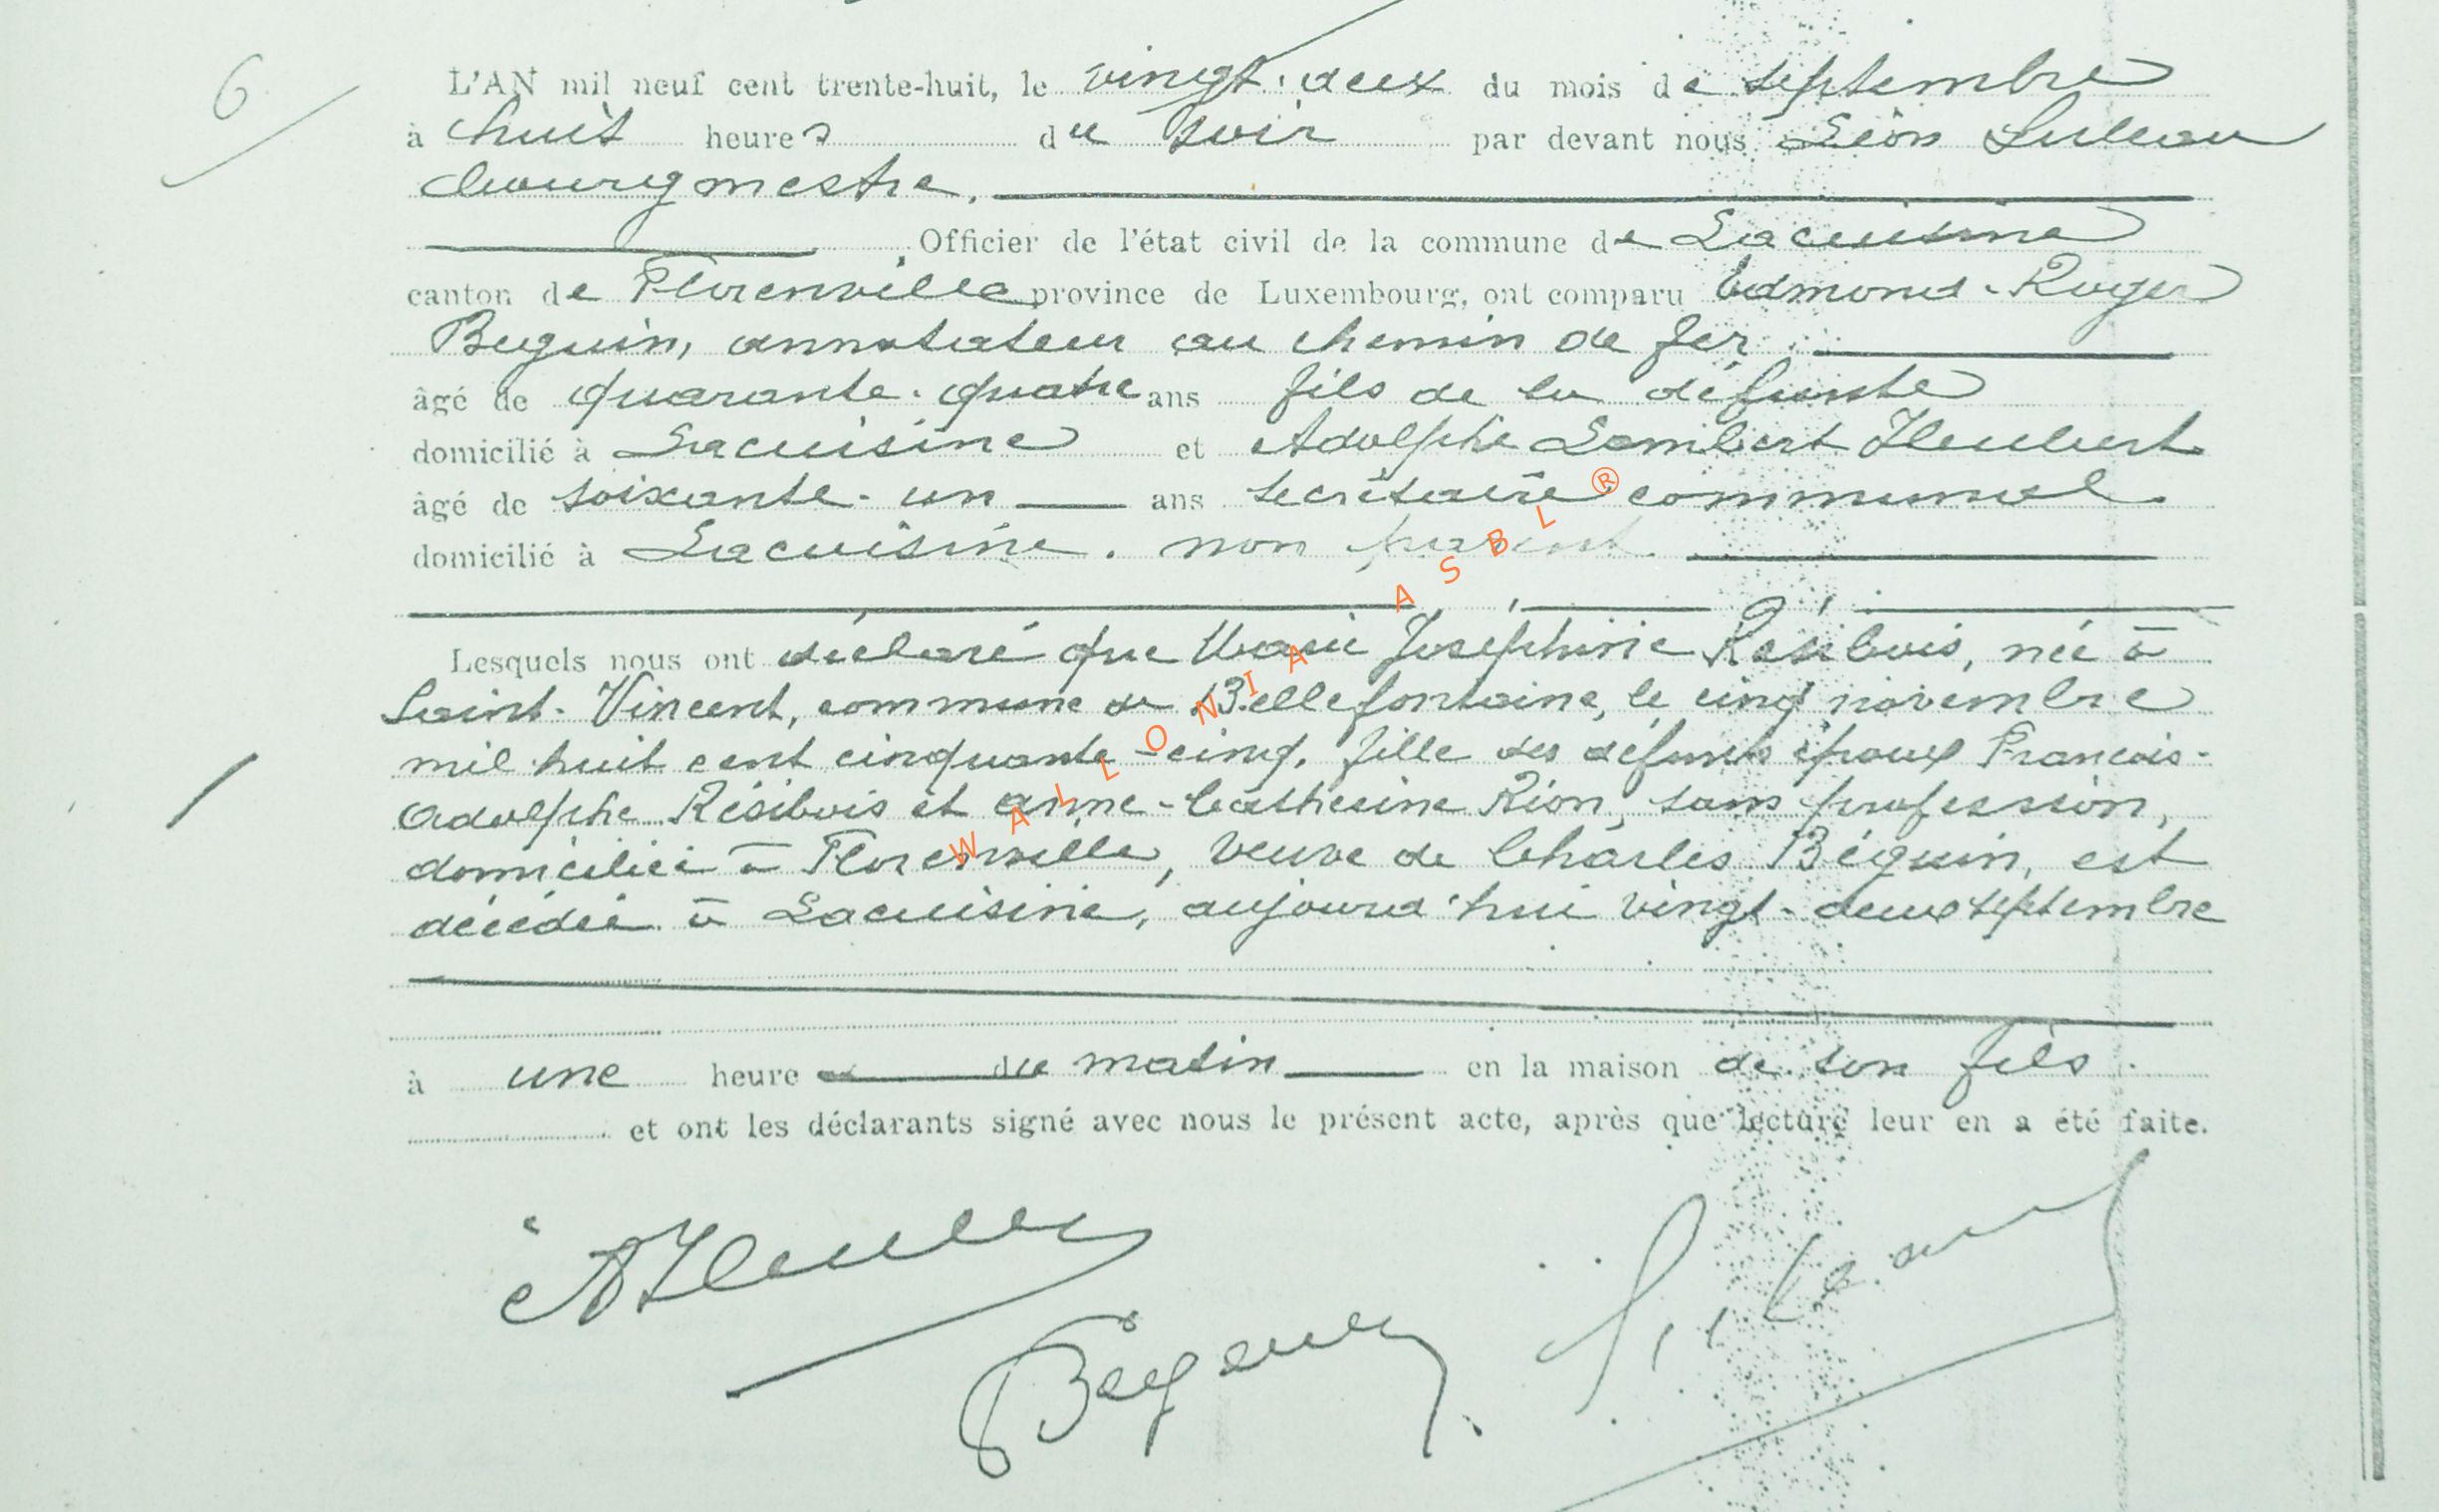 6
L'AN mil neuf cent trente-huit, le vingt-deux du mois de septembre
à huit heures du soir par devant nous Léon
bourgmestre,
Officier de l'état civil de la commune de Lacuisine
canton de Florenville province de Luxembourg, ont comparu Edmond-Roger
Beguin, annotateur au chemin de fer
âgé de quarante-quatre ans fils de la défunte
domicilié à Lacuisine et Adolphe Lambert
âgé de soixante-un ans secrétaire communal
domicilié à Lacuisine. non parent.
Lesquels nous ont déclaré que Marie Joséphine Résibois, née à
Saint-Vincent, commune de Bellefontaine, le cinq novembre
mil huit cent cinquante-cinq, fille des défunts époux François-
Adolphe Résibois et Anne-Catherine Rion, sans profession,
domiciliée à Florenville, veuve de Charles Béguin, est
décédée à Lacuisine, aujourd'hui vingt-deux septembre
à une heure du matin en la maison de son fils.
et ont les déclarants signé avec nous le présent acte, après que lecture leur en a été faite.
Béguin
WALLONIA ASBL ®